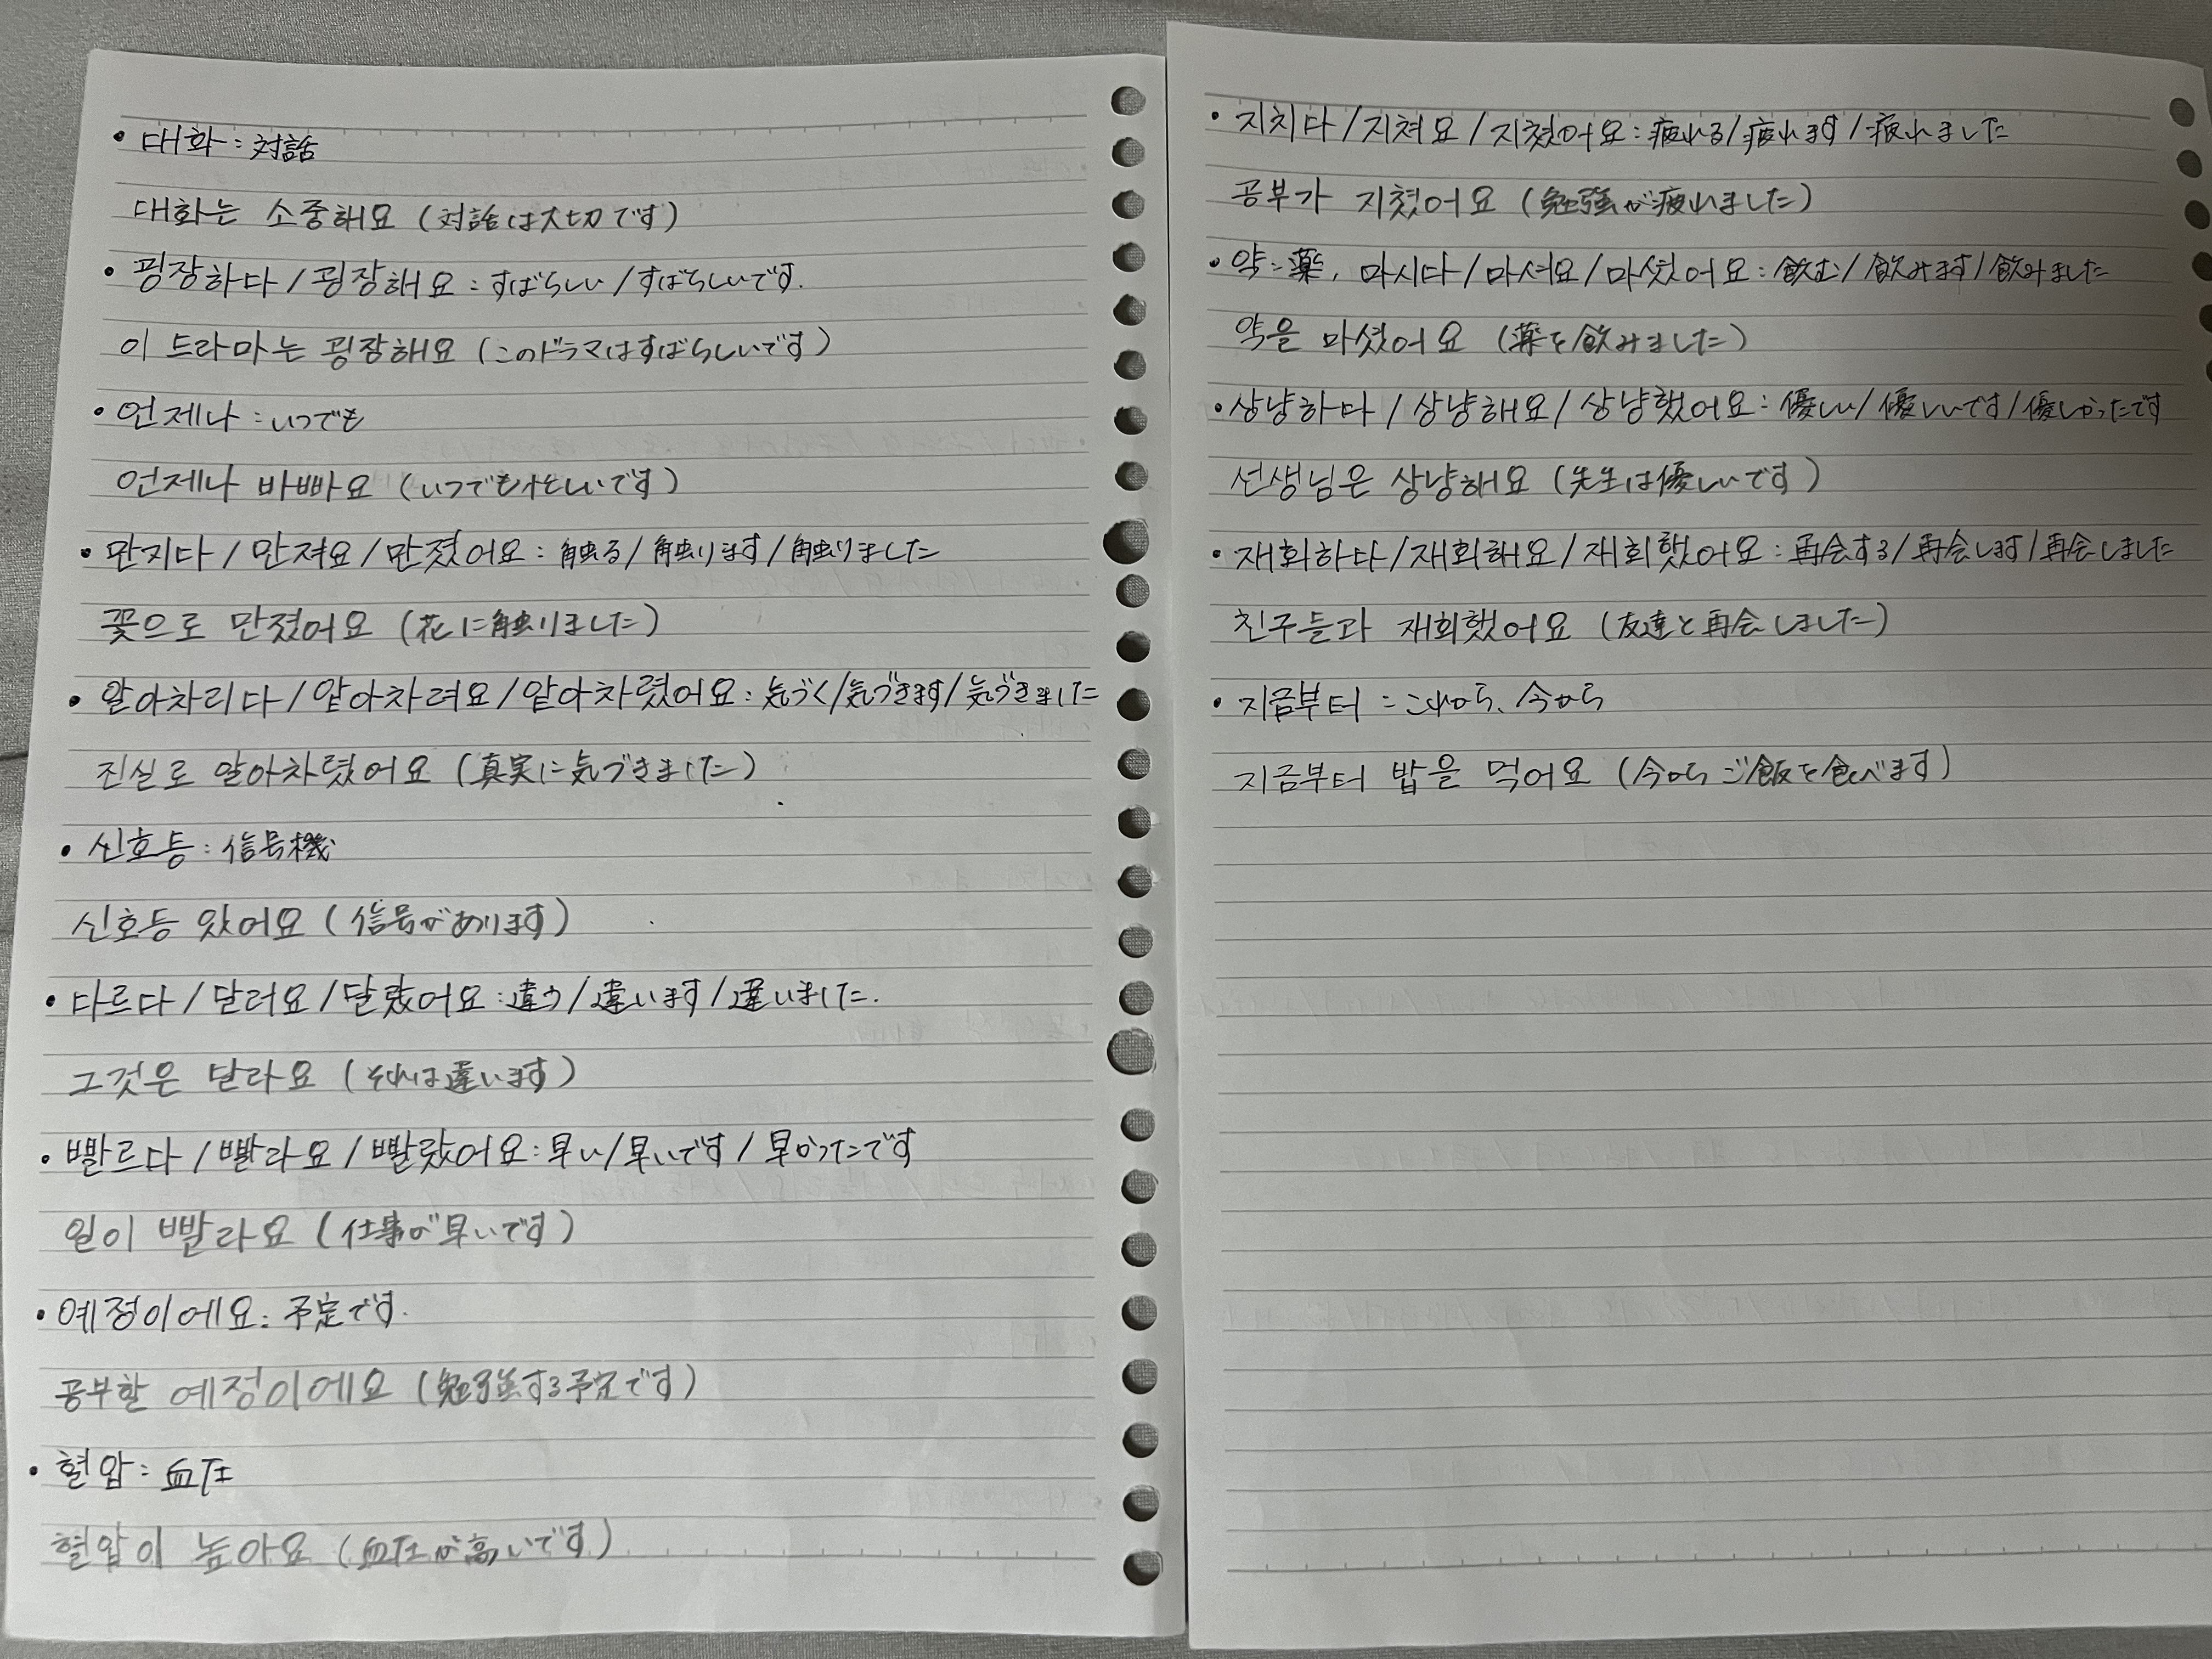 • 대화 : 対話
대화는 소중해요 (対話は大切です)
• 굉장하다 / 굉장해요 : すばらしい / すばらしいです.
이 드라마는 굉장해요 (このドラマはすばらしいです)
• 언제나 : いつでも
언제나 바빠요 (いつでも忙しいです)
• 만지다 / 만져요 / 만졌어요 : 触る / 触ります / 触りました
꽃으로 만졌어요 (花に触りました)
• 알아차리다 / 알아차려요 / 알아차렸어요 : 気づく / 気づきます / 気づきました
진실로 알아차렸어요 (真実に気づきました)
• 신호등 : 信号機
신호등 있어요 (信号があります)
• 다르다 / 달러요 / 달랐어요 : 違う / 違います / 違いました.
그것은 달라요 (それは違います)
• 빨르다 / 빨라요 / 빨랐어요 : 早い / 早いです / 早かったです
일이 빨라요 (仕事が早いです)
• 예정이에요 : 予定です.
공부할 예정이에요 (勉強する予定です)
• 혈압 : 血圧
혈압이 높아요 (血圧が高いです)
• 지치다 / 지쳐요 / 지쳤어요 : 疲れる / 疲れます / 疲れました
공부가 지쳤어요 (勉強が疲れました)
• 약 : 薬, 마시다 / 마셔요 / 마셨어요 : 飲む / 飲みます / 飲みました
약을 마셨어요 (薬を飲みました)
• 상냥하다 / 상냥해요 / 상냥했어요 : 優しい / 優しいです / 優しかったです
선생님은 상냥해요 (先生は優しいです)
• 재회하다 / 재회해요 / 재회했어요 : 再会する / 再会します / 再会しました
친구들과 재회했어요 (友達と再会しました)
• 지금부터 : これから、今から
지금부터 밥을 먹어요 (今からご飯を食べます)